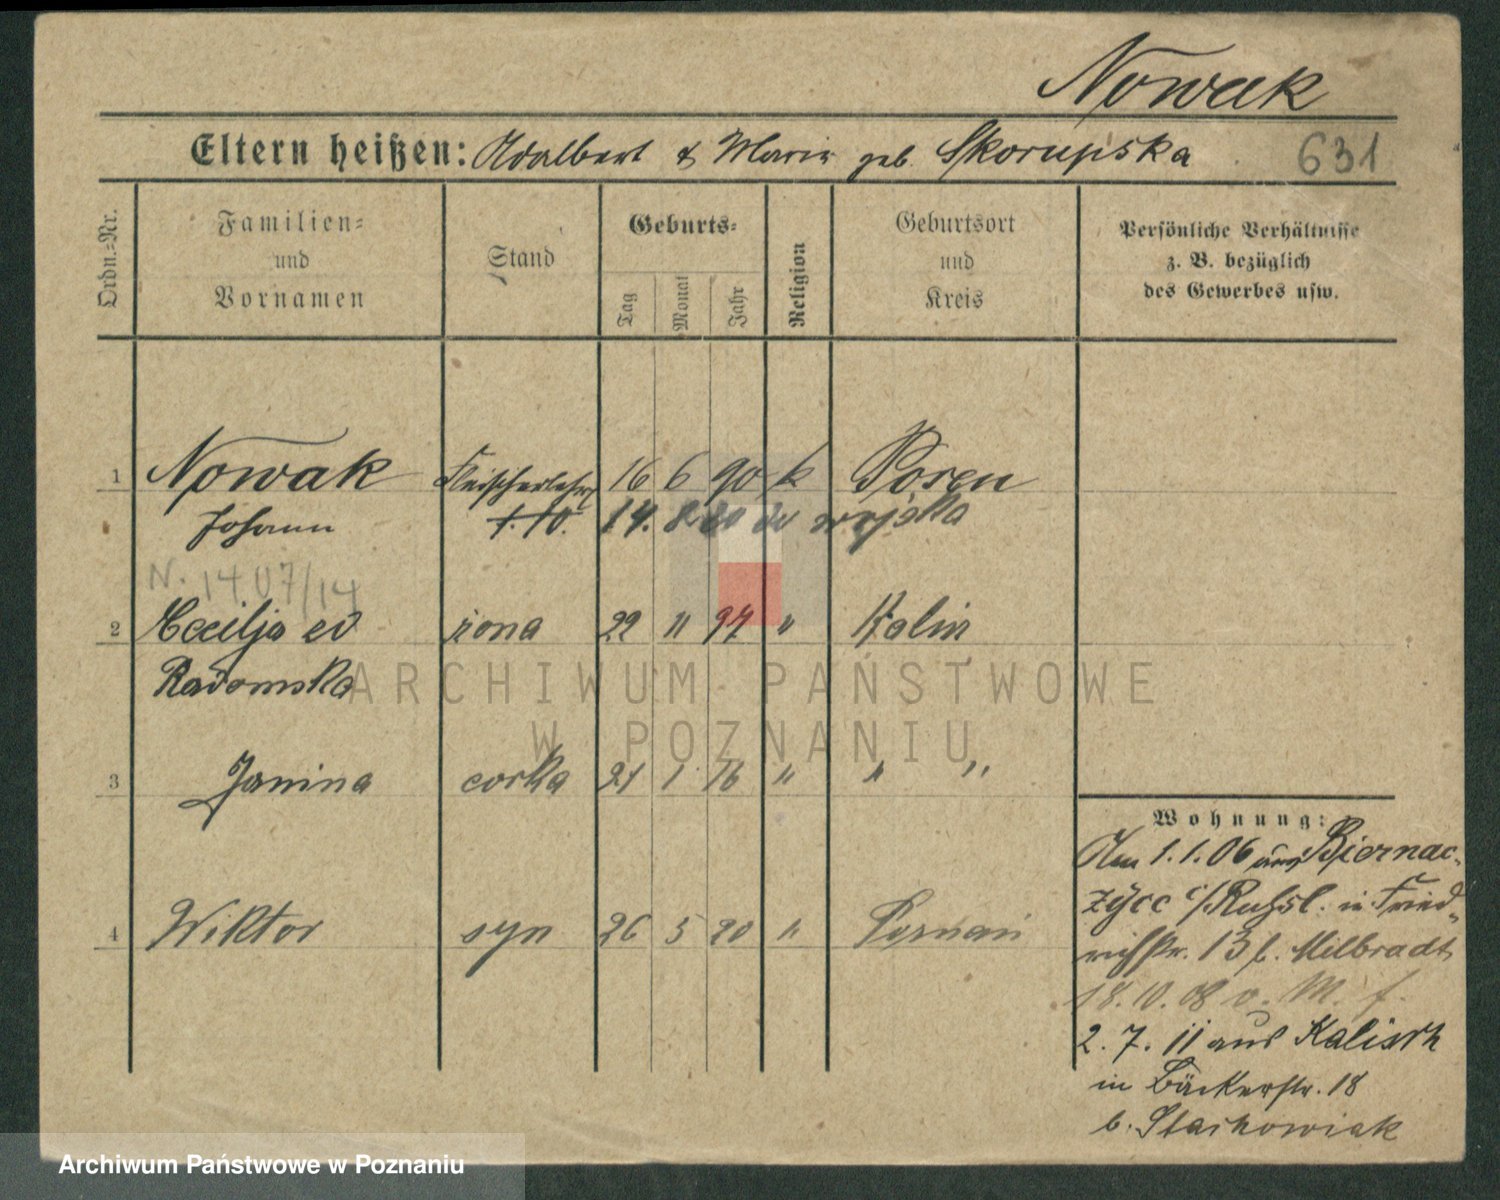 Nowak
Eltern heißen: Adalbert & Maria geb. Skorupska 631
Ordn.-Nr.
Familien- und Vornamen
Stand
Geburts-
Tag
Monat
Jahr
Religion
Geburtsort und Kreis
Persönliche Verhältnisse
z. B. bezüglich
des Gewerbes usw.
1 Nowak Fleischerlehrl 16 6 90 k Posen
Johann 1.10. 14. 8 20 do wojska
N. 1407/14
2 Cecilja ed żona 22 11 97 " Kalin
Radomska
3 Janina corka 21 1 16 " " "
4 Wiktor syn 26 5 20 " Poznań
Wohnung:
Am 1.1.06 aus Biernac-
zyce in Fried-
richstr. 13 b. Milbradt
18.10.08 v. M. f.
2. 7. 11 aus Kalisch
in Bäckerstr. 18
b. Stachowiak
ARCHIWUM PAŃSTWOWE
W POZNANIU
Archiwum Państwowe w Poznaniu